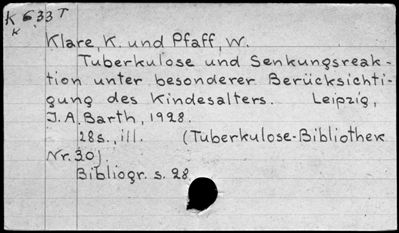 K 633 T
K
Klare, K. und Pfaff, W.
Tuberkulose und Senkungsreak-
tion unter besonderer Berücksichti-
gung des Kindesalters. Leipzig,
J.A. Barth, 1928.
28s., ill. (Tuberkulose-Bibliothek
Nr.30).
Bibliogr. s. 28